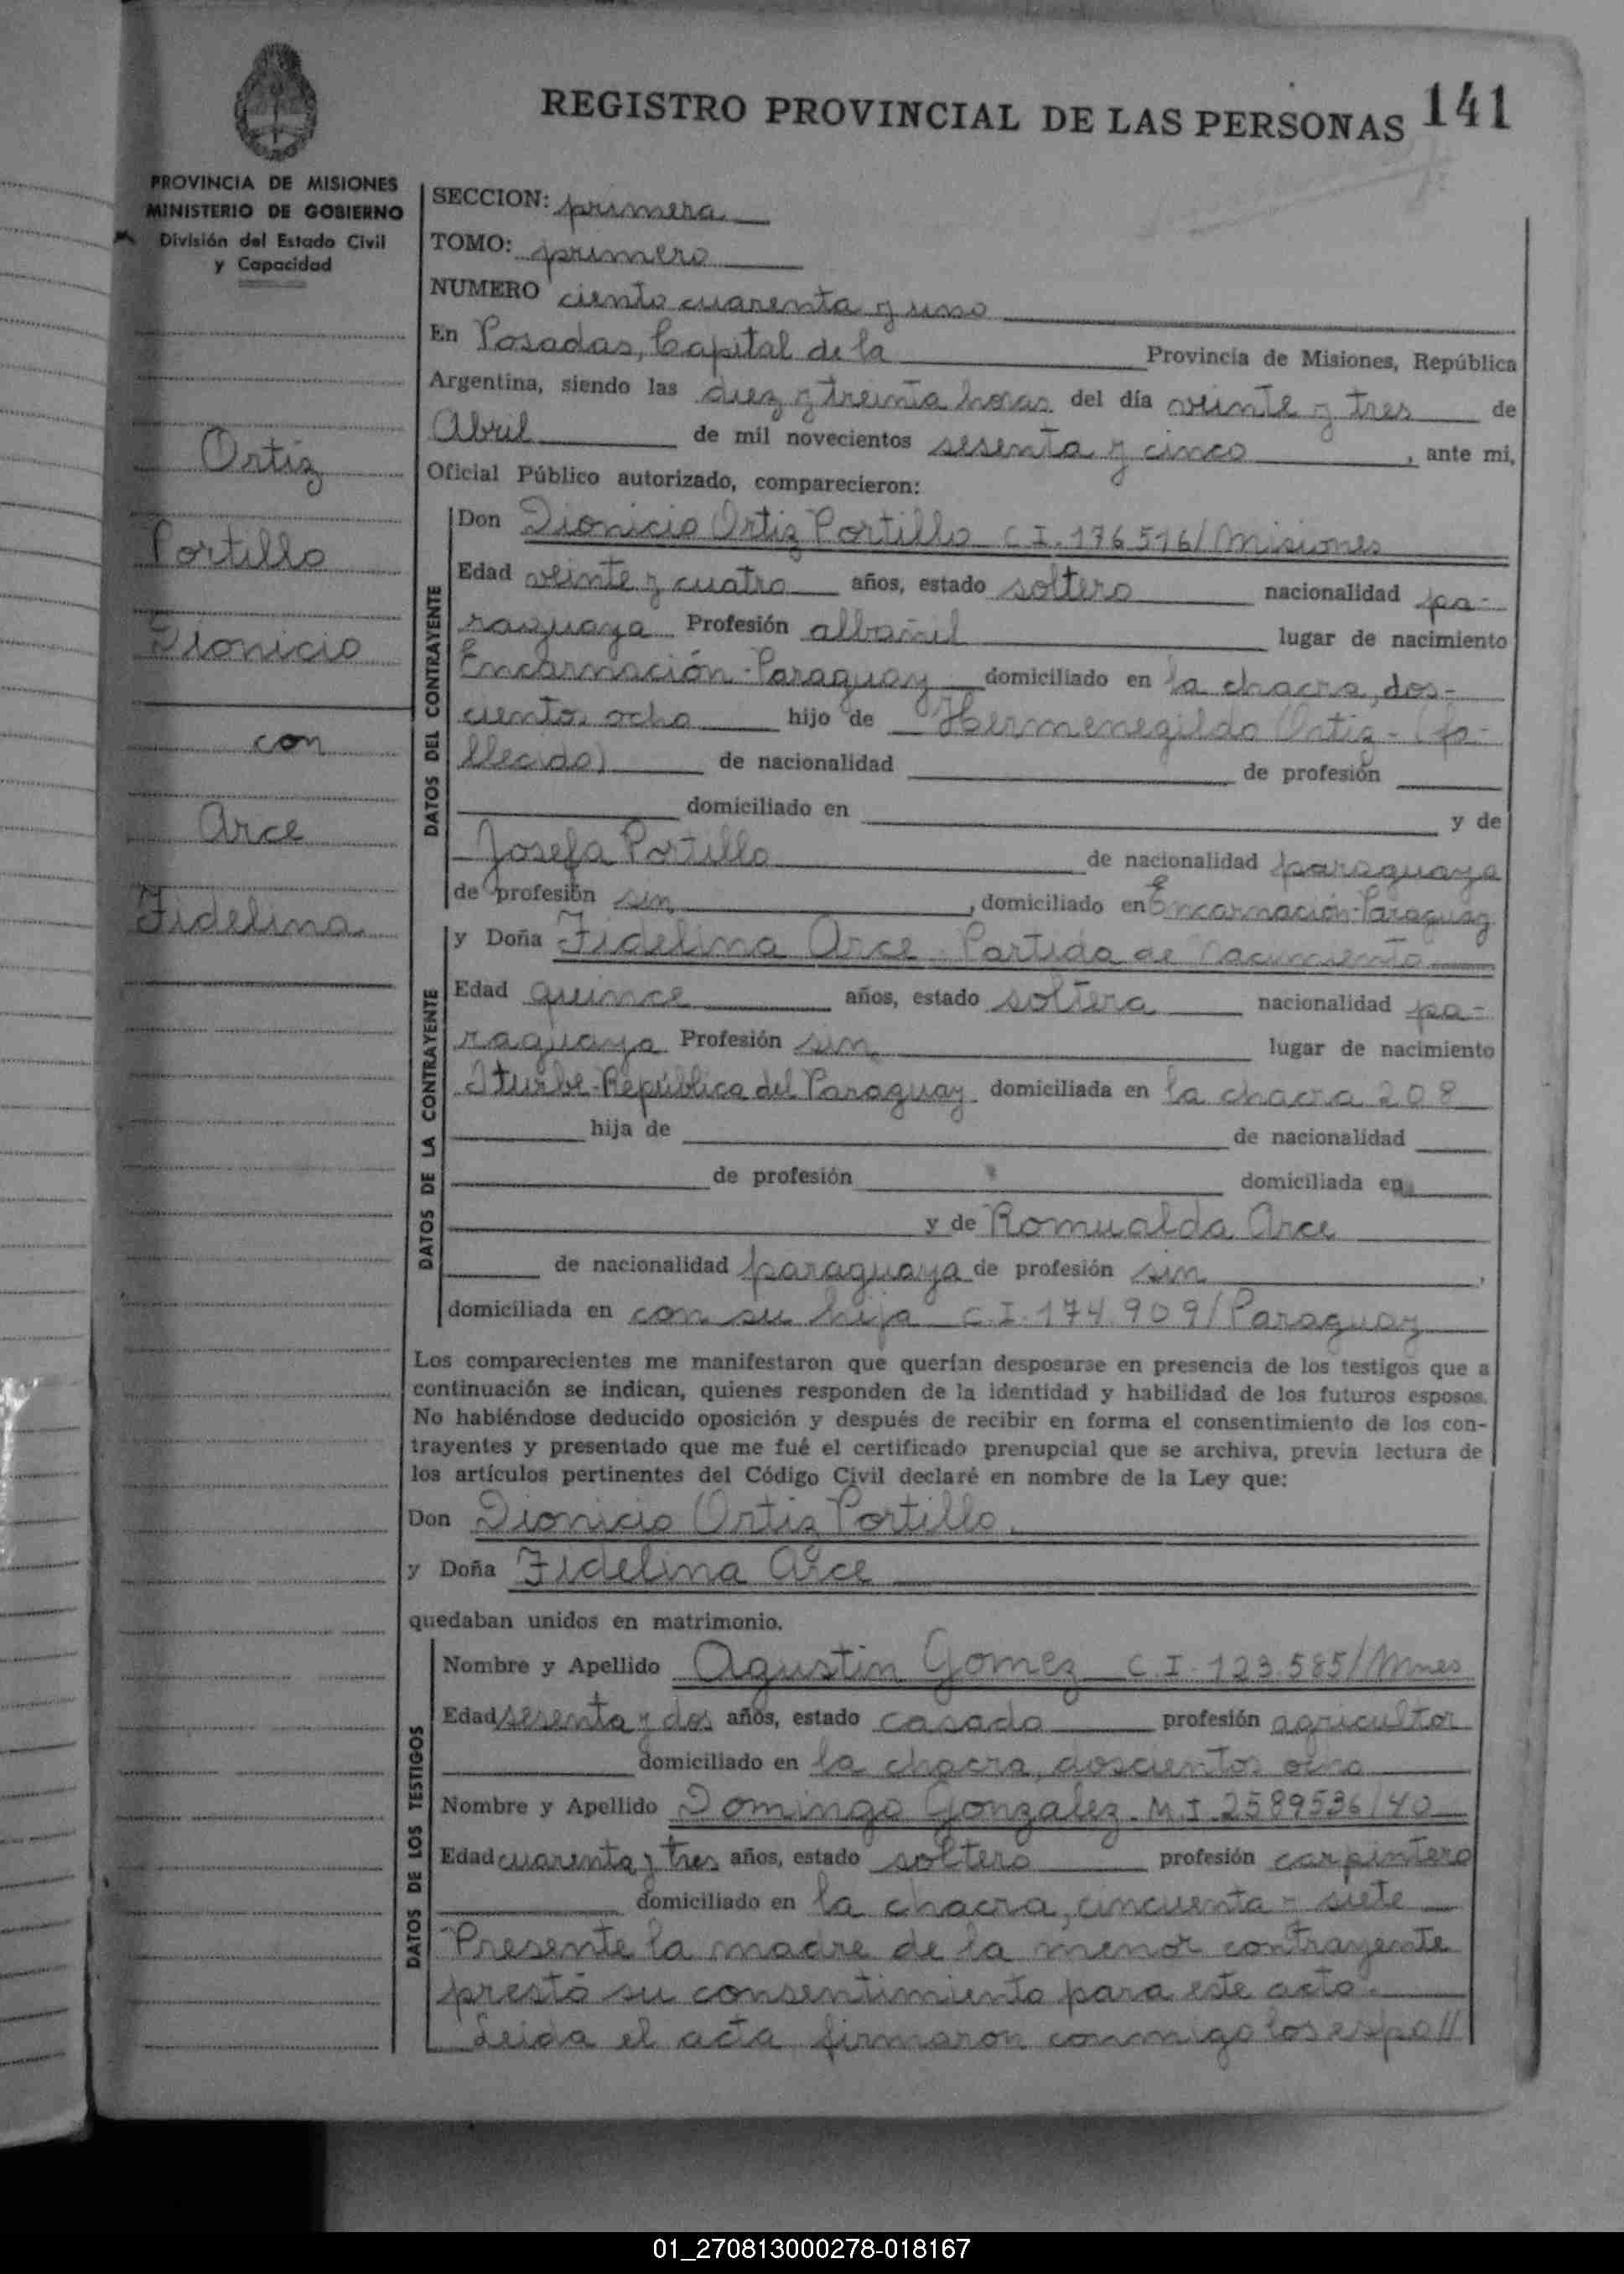 REGISTRO PROVINCIAL DE LAS PERSONAS 141
PROVINCIA DE MISIONES
MINISTERIO DE GOBIERNO
División del Estado Civil
y Capacidad
Ortiz
Portillo
Dionicio
con
Arce
Fidelina
SECCION: primera
TOMO: primero
NUMERO ciento cuarenta y uno
En Posadas, Capital de la Provincia de Misiones, República
Argentina, siendo las diez y treinta horas del día veinte y tres de
Abril de mil novecientos sesenta y cinco, ante mi,
Oficial Público autorizado, comparecieron:
DATOS DEL CONTRAYENTE
Don Dionicio Ortiz Portillo C I. 176516/Misiones
Edad veinte y cuatro años, estado soltero nacionalidad pa-
raguaya Profesión albañil lugar de nacimiento
Encarnación-Paraguay domiciliado en la chacra, dos-
cientos ocho hijo de Hermenegildo Ortiz - (fa-
llecido) de nacionalidad de profesión
domiciliado en y de
Josefa Portillo de nacionalidad paraguaya
de profesión sin, domiciliado en Encarnación-Paraguay
DATOS DE LA CONTRAYENTE
y Doña Fidelina Arce - Partida de nacimiento
Edad quince años, estado soltera nacionalidad pa-
raguaya Profesión sin lugar de nacimiento
Iturbe-República del Paraguay domiciliada en la chacra 208
hija de de nacionalidad
de profesión domiciliada en
y de Romualda Arce
de nacionalidad paraguaya de profesión sin,
domiciliada en con su hija C.I. 174.909/Paraguay
Los comparecientes me manifestaron que querían desposarse en presencia de los testigos que a
continuación se indican, quienes responden de la identidad y habilidad de los futuros esposos.
No habiéndose deducido oposición y después de recibir en forma el consentimiento de los con-
trayentes y presentado que me fué el certificado prenupcial que se archiva, previa lectura de
los artículos pertinentes del Código Civil declaré en nombre de la Ley que:
Don Dionicio Ortiz Portillo
y Doña Fidelina Arce
quedaban unidos en matrimonio.
DATOS DE LOS TESTIGOS
Nombre y Apellido Agustin Gomez C.I. 123.585/Mnes
Edad sesenta y dos años, estado casado profesión agricultor
domiciliado en la chacra, doscientos ocho
Nombre y Apellido Domingo Gonzalez - M.I. 2589536/40
Edad cuarenta y tres años, estado soltero profesión carpintero
domiciliado en la chacra, cincuenta y siete
Presente la madre de la menor contrayente
prestó su consentimiento para este acto.
Leida el acta firmaron conmigo los espo//
01_270813000278-018167